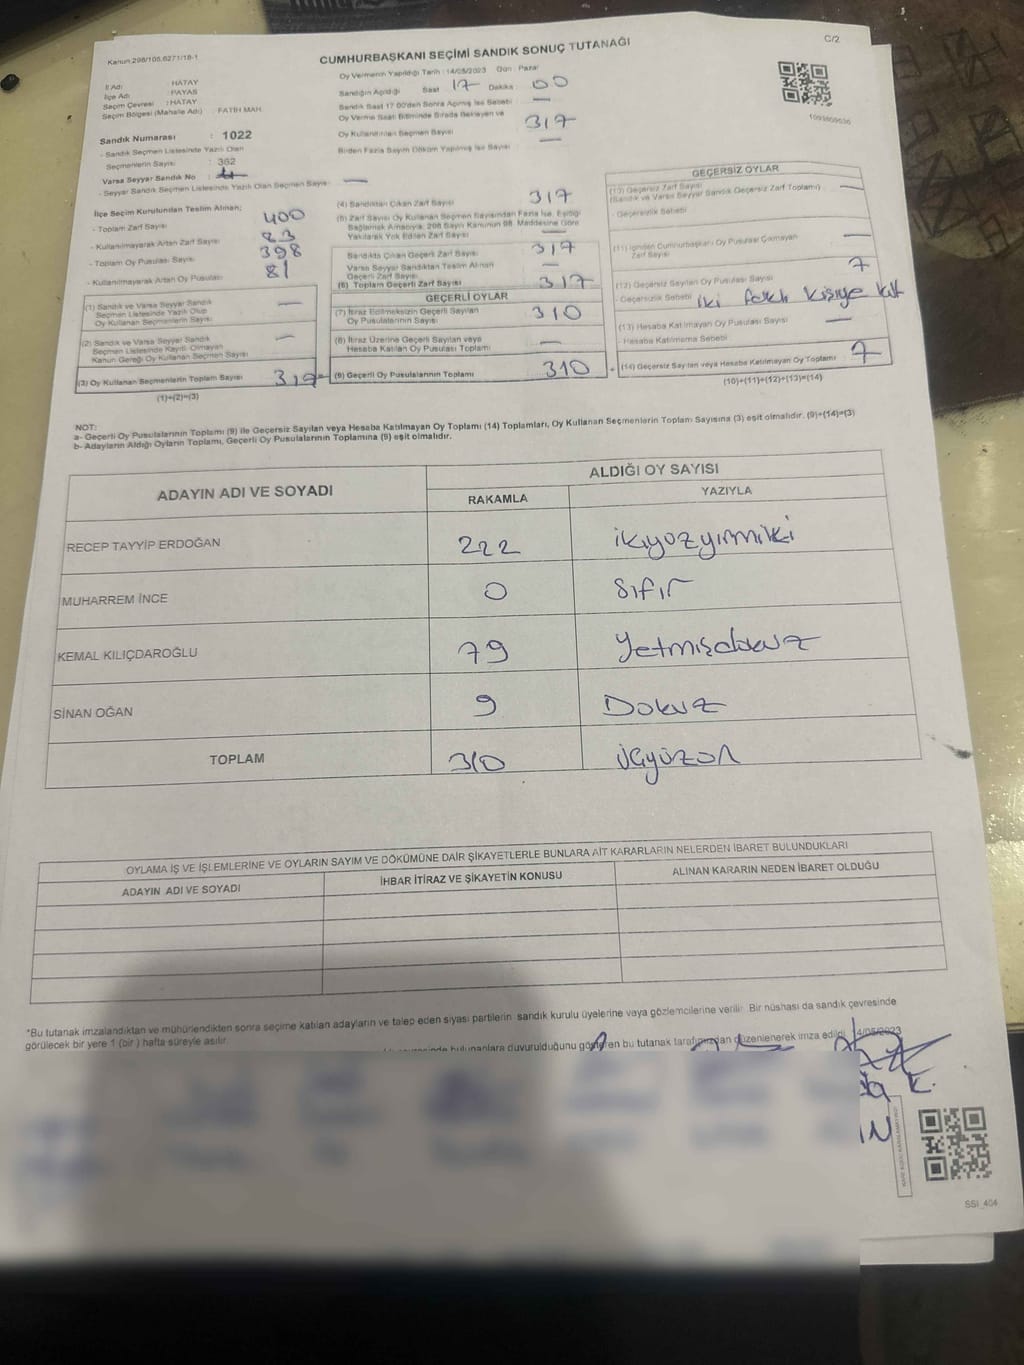 C/2
Kanun:298/105,6271/18-1
CUMHURBAŞKANI SEÇİMİ SANDIK SONUÇ TUTANAĞI
Oy Vermenin Yapıldığı Tarih : 14/05/2023 Gün : Pazar
İl Adı : HATAY
İlçe Adı : PAYAS
Seçim Çevresi : HATAY
Seçim Bölgesi (Mahalle Adı) : FATİH MAH.
Sandık Numarası : 1022
- Sandık Seçmen Listesinde Yazılı Olan
Seçmenlerin Sayısı : 362
Varsa Seyyar Sandık No :
- Seyyar Sandık Seçmen Listesinde Yazılı Olan Seçmen Sayısı —
İlçe Seçim Kurulundan Teslim Alınan;
- Toplam Zarf Sayısı 400
- Kullanılmayarak Artan Zarf Sayısı 83
- Toplam Oy Pusulası Sayısı 398
- Kullanılmayarak Artan Oy Pusulası 81
(1) Sandık ve Varsa Seyyar Sandık
Seçmen Listesinde Yazılı Olup
Oy Kullanan Seçmenlerin Sayısı —
(2) Sandık ve Varsa Seyyar Sandık
Seçmen Listesinde Kayıtlı Olmayan
Kanun Gereği Oy Kullanan Seçmen Sayısı —
(3) Oy Kullanan Seçmenlerin Toplam Sayısı 317
(1)+(2)=(3)
Sandığın Açıldığı Saat 17 Dakika 00
Sandık Saat 17:00'den Sonra Açılmış İse Sebebi —
Oy Verme Saati Bitiminde Sırada Bekleyen ve
Oy Kullandırılan Seçmen Sayısı 317
Birden Fazla Sayım Döküm Yapılmış İse Sayısı —
(4) Sandıktan Çıkan Zarf Sayısı 317
(5) Zarf Sayısı Oy Kullanan Seçmen Sayısından Fazla İse, Eşitliği
Sağlamak Amacıyla, 298 Sayılı Kanunun 98. Maddesine Göre
Yakılarak Yok Edilen Zarf Sayısı —
Sandıkta Çıkan Geçerli Zarf Sayısı 317
Varsa Seyyar Sandıktan Teslim Alınan
Geçerli Zarf Sayısı —
(6) Toplam Geçerli Zarf Sayısı 317
GEÇERLİ OYLAR
(7) İtiraz Edilmeksizin Geçerli Sayılan
Oy Pusulalarının Sayısı 310
(8) İtiraz Üzerine Geçerli Sayılan veya
Hesaba Katılan Oy Pusulası Toplamı —
(9) Geçerli Oy Pusulalarının Toplamı 310
1093809036
GEÇERSİZ OYLAR
(10) Geçersiz Zarf Sayısı
(Sandık ve Varsa Seyyar Sandık Geçersiz Zarf Toplamı) —
- Geçersizlik Sebebi
(11) İçinden Cumhurbaşkanı Oy Pusulası Çıkmayan
Zarf Sayısı —
(12) Geçersiz Sayılan Oy Pusulası Sayısı 7
- Geçersizlik Sebebi iki farklı kişiye
(13) Hesaba Katılmayan Oy Pusulası Sayısı —
- Hesaba Katılmama Sebebi
(14) Geçersiz Sayılan veya Hesaba Katılmayan Oy Toplamı 7
(10)+(11)+(12)+(13)=(14)
NOT:
a- Geçerli Oy Pusulalarının Toplamı (9) ile Geçersiz Sayılan veya Hesaba Katılmayan Oy Toplamı (14) Toplamları, Oy Kullanan Seçmenlerin Toplam Sayısına (3) eşit olmalıdır. (9)+(14)=(3)
b- Adayların Aldığı Oyların Toplamı, Geçerli Oy Pusulalarının Toplamına (9) eşit olmalıdır.
ADAYIN ADI VE SOYADI ALDIĞI OY SAYISI
RAKAMLA YAZIYLA
RECEP TAYYİP ERDOĞAN 222 ikiyüzyirmiiki
MUHARREM İNCE 0 Sıfır
KEMAL KILIÇDAROĞLU 79 Yetmişdokuz
SİNAN OĞAN 9 Dokuz
TOPLAM 310 üçyüzon
OYLAMA İŞ VE İŞLEMLERİNE VE OYLARIN SAYIM VE DÖKÜMÜNE DAİR ŞİKAYETLERLE BUNLARA AİT KARARLARIN NELERDEN İBARET BULUNDUKLARI
ADAYIN ADI VE SOYADI İHBAR İTİRAZ VE ŞİKAYETİN KONUSU ALINAN KARARIN NEDEN İBARET OLDUĞU
*Bu tutanak imzalandıktan ve mühürlendikten sonra seçime katılan adayların ve talep eden siyasi partilerin sandık kurulu üyelerine veya gözlemcilerine verilir. Bir nüshası da sandık çevresinde
görülecek bir yere 1 (bir ) hafta süreyle asılır.
bulunanlara duyurulduğunu gösteren bu tutanak tarafımızdan düzenlenerek imza edildi. 14/05/2023
SSİ_404